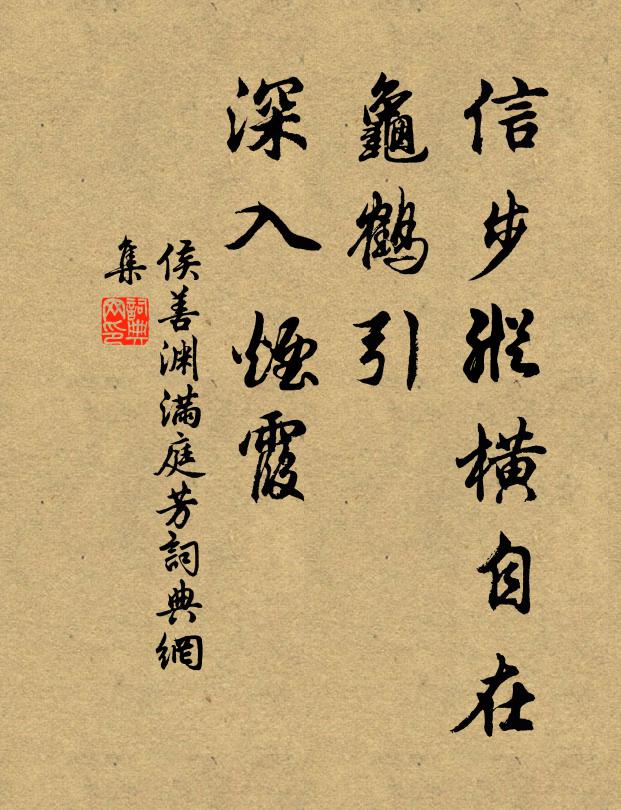 信步縱橫自在
龜鶴引
深入煙霞
侯善渊滿庭芳詞典網
集
詞典
网印